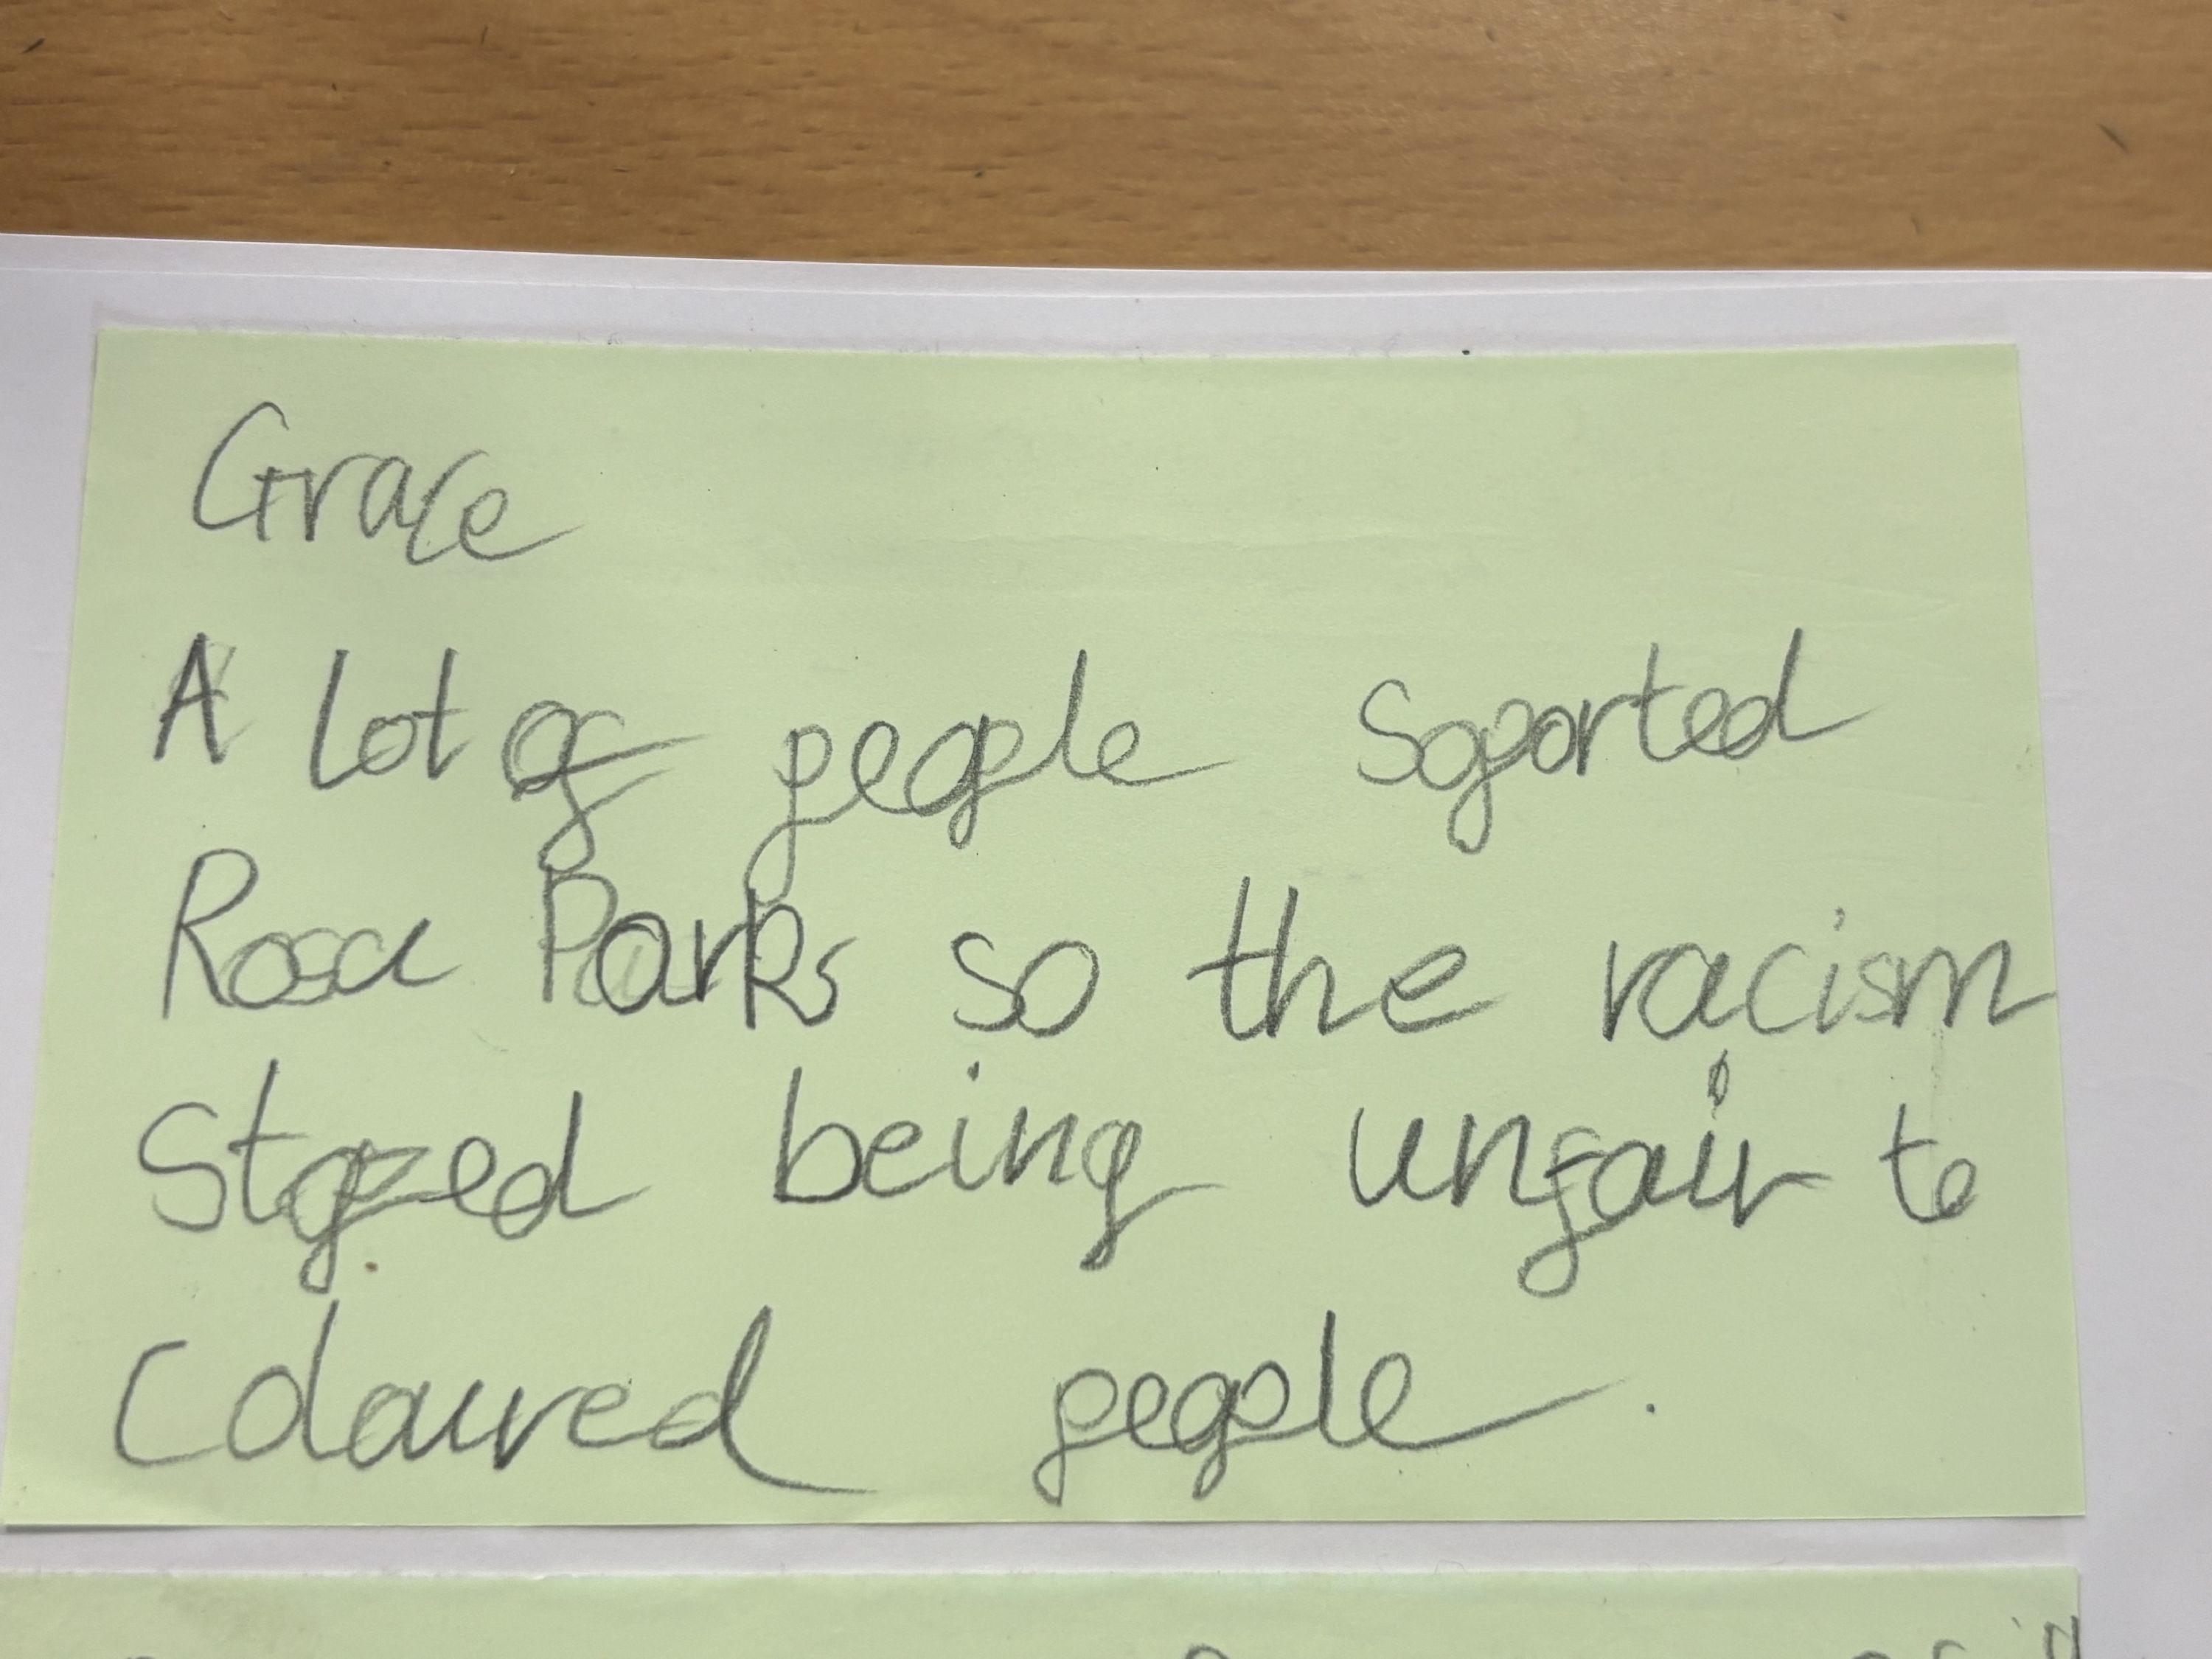 Grace
A lot of people soported
Rosa Parks so the racism
stoped being unfair to
coloured people.